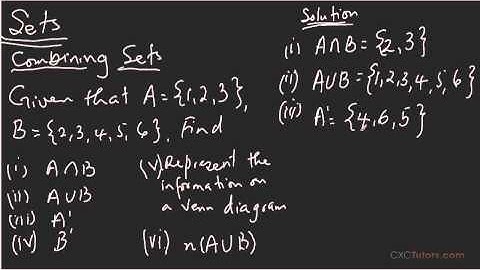 Sets
Combining Sets
Given that A = {1,2,3},
B = {2,3,4,5,6}. Find
(i) A∩B
(ii) A∪B
(iii) A'
(iv) B'
(v) Represent the
information on
a venn diagram
(vi) n(A∪B)
Solution
(i) A∩B = {2,3}
(ii) A∪B = {1,2,3,4,5,6}
(iii) A' = {4,6,5}
CXCTutors.com